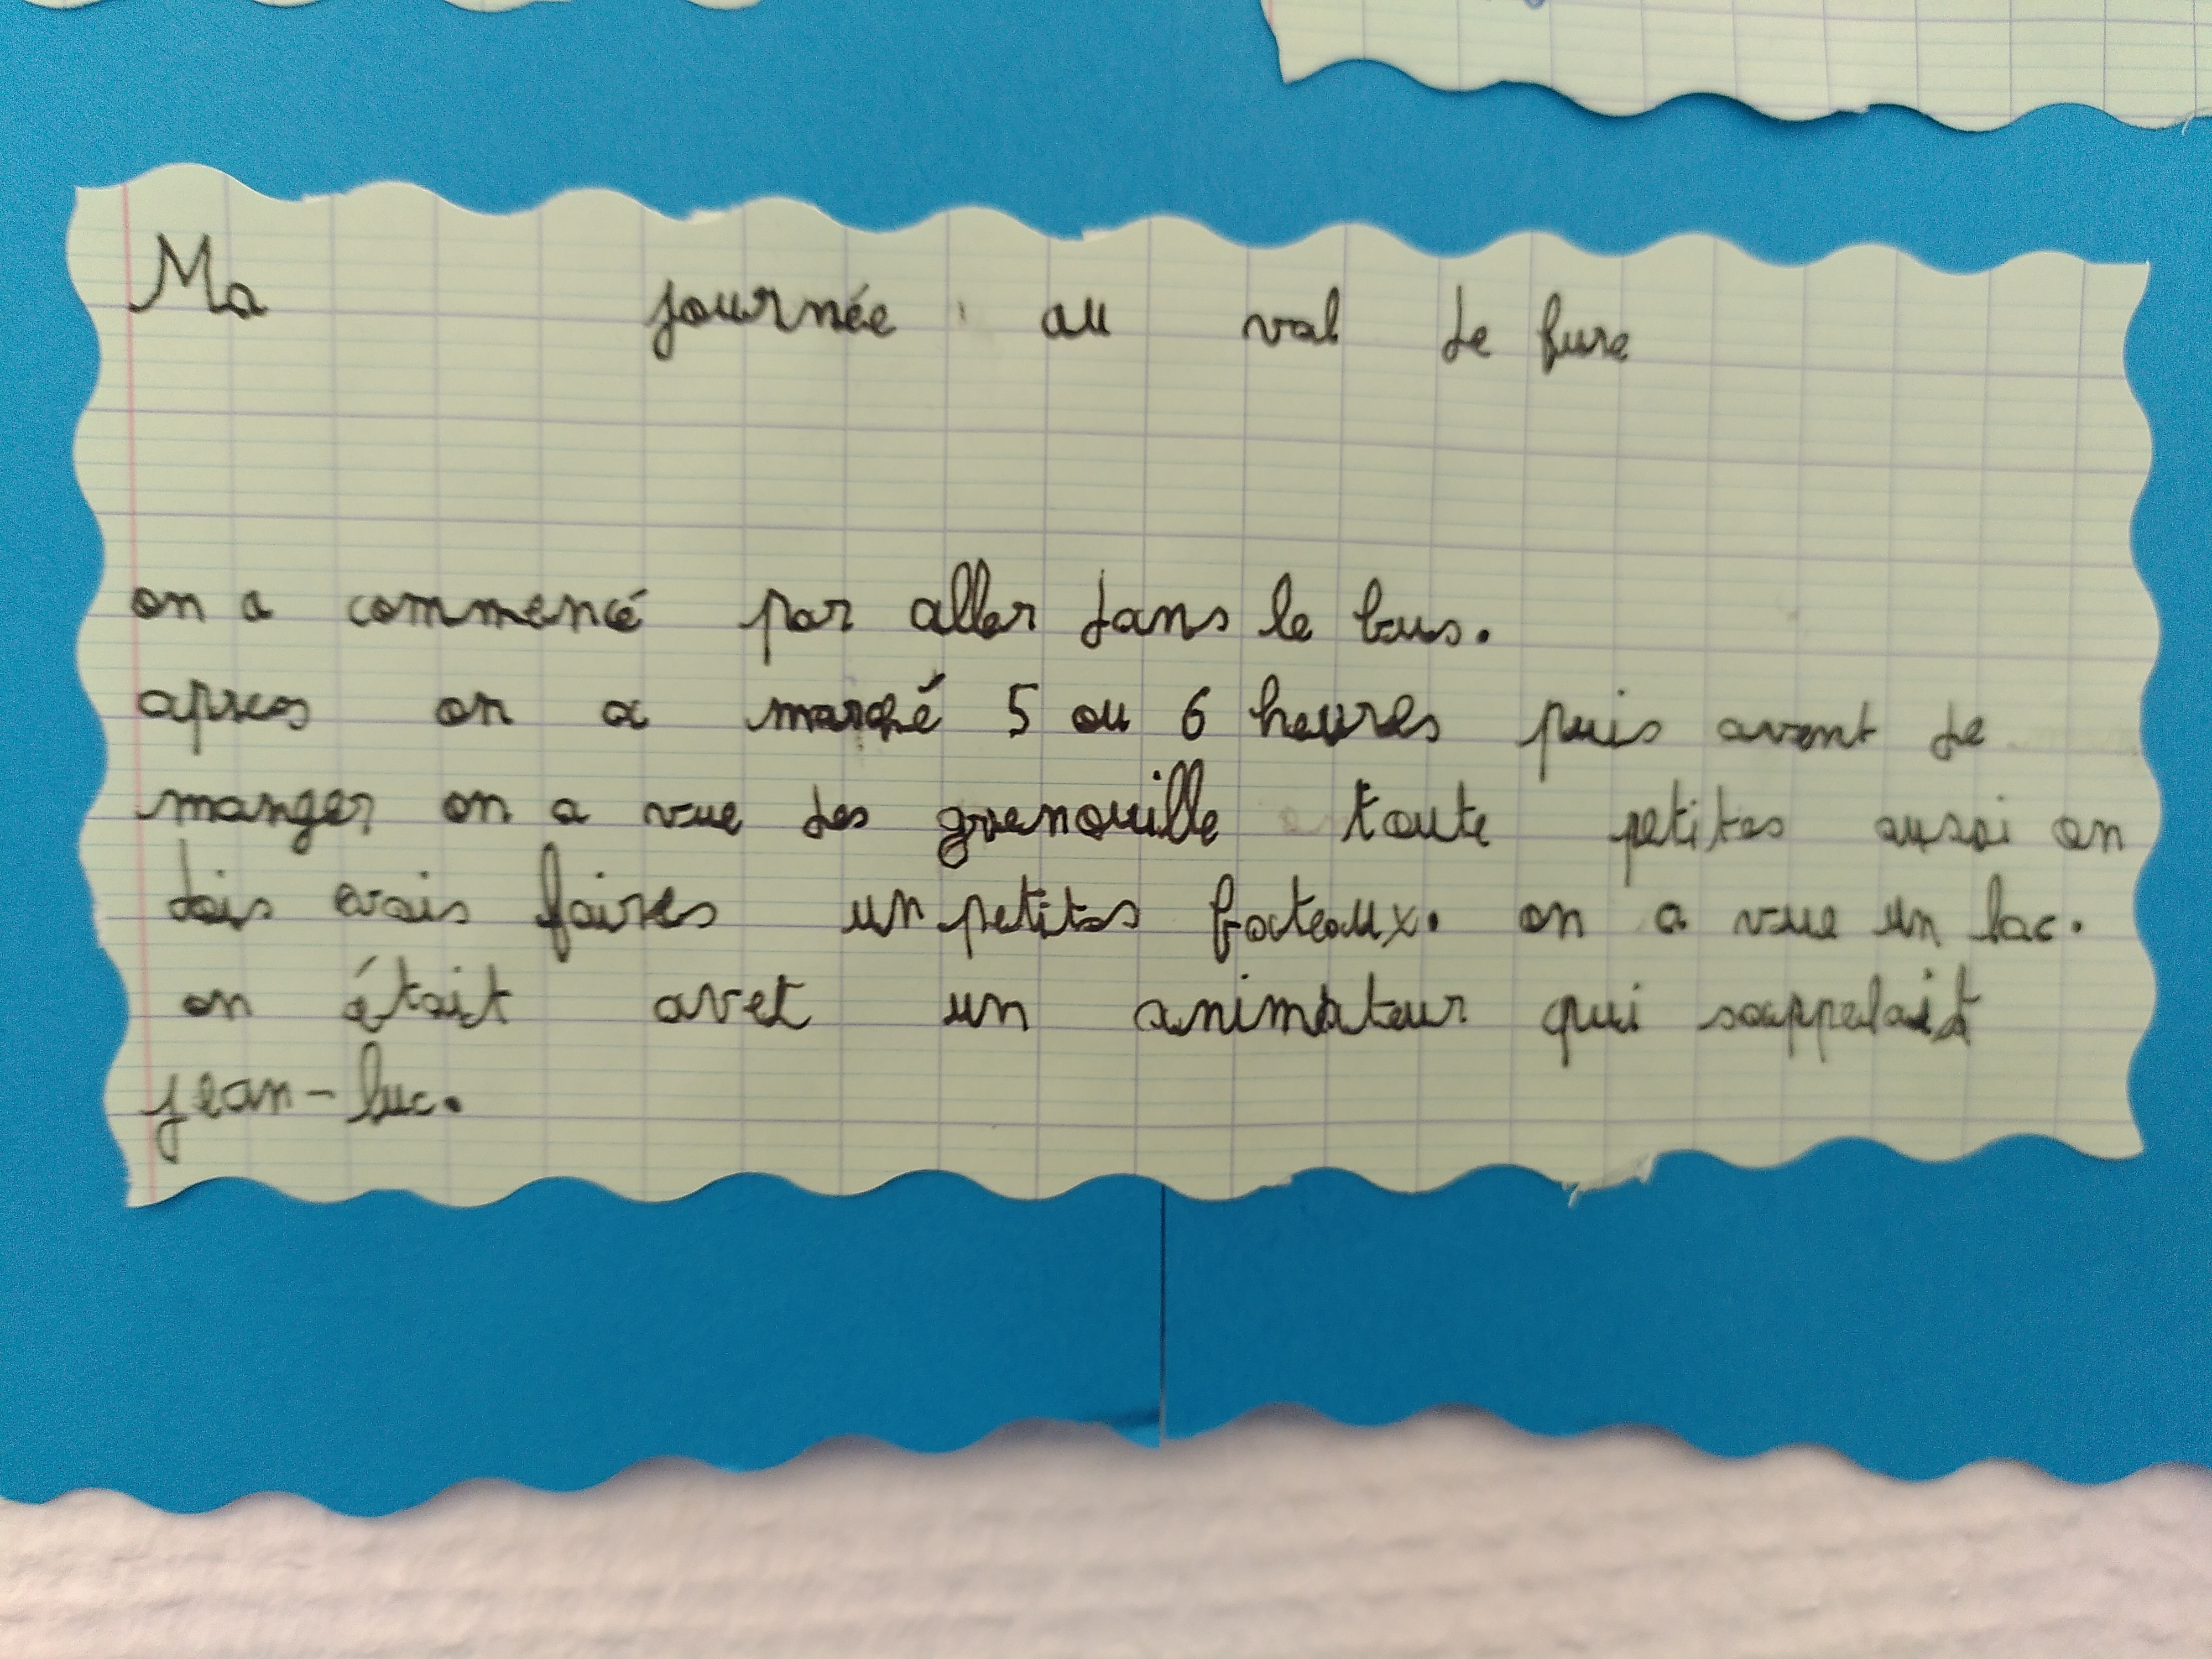 Ma journée au val de fure
on a commencé par aller dans le bus.
apres on a marché 5 ou 6 heures puis avent de
manger on a vue des grenouille toute petites aussi on
dois avais faires un petites bateaux. on a vue un lac.
on était avet un animateur qui sappelait
jean-luc.